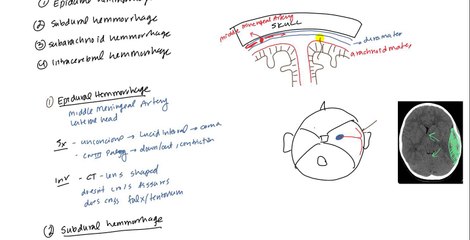 ① Epidural Hemorrhage
② Subdural Hemorrhage
③ subarachnoid Hemorrhage
④ Intracerebral Hemorrhage
middle meningeal Artery
SKULL
dura mater
arachnoid mater
① Epidural Hemorrhage
Middle Meningeal Artery
Lateral head
Sx - unconscious → Lucid interval → coma
- Palsy → down/out, constriction
Inv - CT - Lens shaped
doesn't cross fissures
does cross falx/tentorium
② Subdural hemorrhage